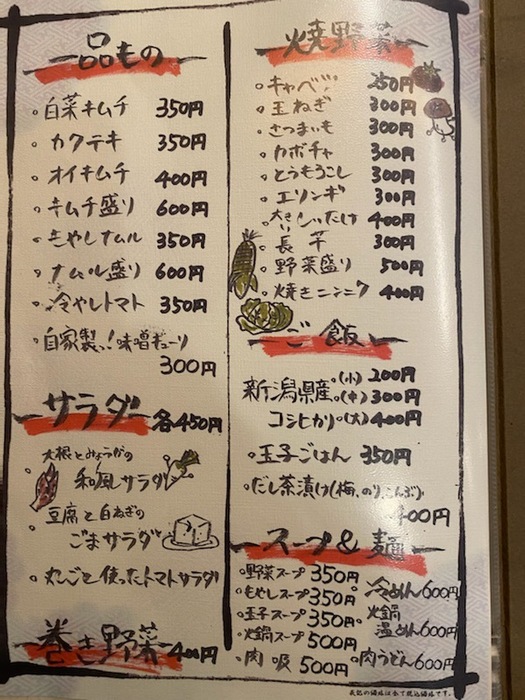 一品もの
白菜キムチ 350円
カクテキ 350円
オイキムチ 400円
キムチ盛り 600円
もやしナムル 350円
ナムル盛り 600円
冷やしトマト 350円
自家製っ!味噌キューリ
300円
サラダ 各450円
大根とみょうがの
和風サラダ
豆腐と白ねぎの
ごまサラダ
丸ごと使ったトマトサラダ
巻き野菜 400円
焼野菜
キャベツ 250円
玉ねぎ 300円
さつまいも 300円
カボチャ 300円
とうもろこし 300円
エリンギ 300円
大きいしいたけ 400円
長芋 300円
野菜盛り 500円
焼きニンニク 400円
ご飯
新潟県産 (小) 200円
(中) 300円
コシヒカリ (大) 400円
玉子ごはん 350円
だし茶漬け(梅、のり、こんぶ)
400円
スープ&麺
野菜スープ 350円
もやしスープ 350円
玉子スープ 350円
火鍋スープ 500円
肉吸 500円
冷めん 600円
火鍋
温めん 600円
肉うどん 600円
表記の価格は全て税込価格です。